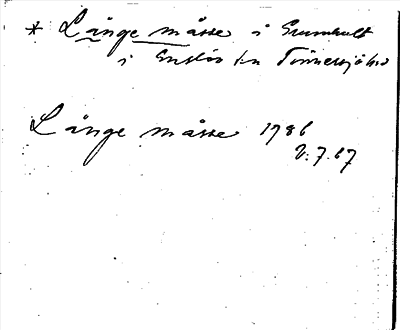 * Långe måsse i Grumhult
i Enslöv sn Tönnersjö hd
Långe måsse 1786
2.7.67